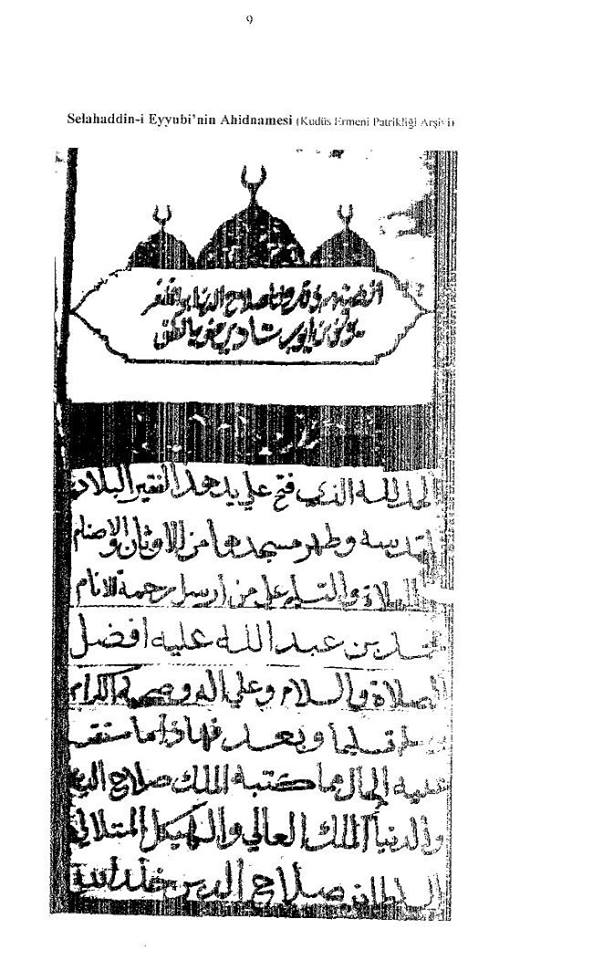 9
Selahaddin-i Eyyubi'nin Ahidnamesi (Kudüs Ermeni Patrikliği Arşivi)
صلاح
بن ايوب
الحمد لله الذي فتح علي يد هذا الفقير البلاد
وطهر مسجدها من الاوثان والاصنام
والتسليم علي من ارسل رحمة للانام
محمد بن عبد الله عليه افضل
الصلاة والسلام وعلي اله وصحبه الكرام
وبعد فهاذا ما استقر
عليه الحال مما كتبه الملك صلاح
والدنيا الملك العالي والهيكل المتلالي
السلطان صلاح الدين خلد الله